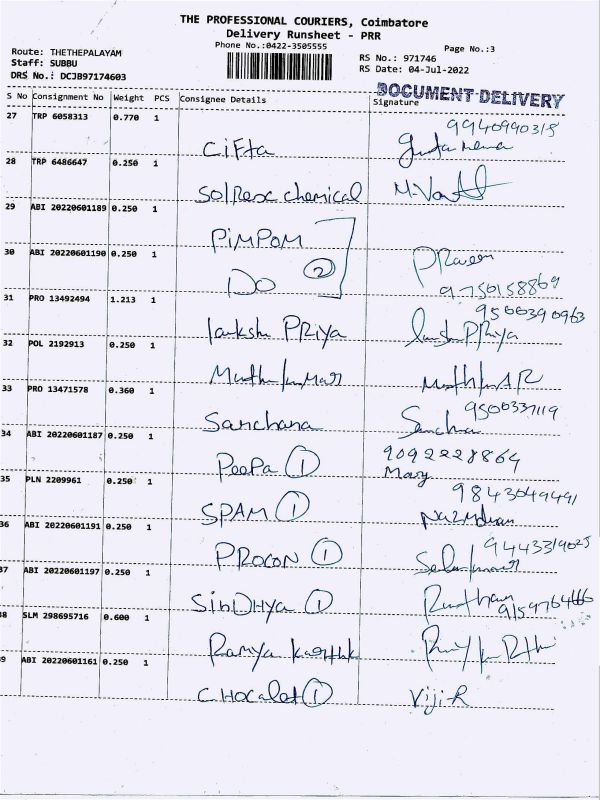 THE PROFESSIONAL COURIERS, Coimbatore
Delivery Runsheet - PRR
Phone No.:0422-3505555
Page No.:3
Route: THETHEPALAYAM
Staff: SUBBU
DRS No.: DCJB97174603
RS No.: 971746
RS Date: 04-Jul-2022
DOCUMENT DELIVERY
S No Consignment No Weight PCS Consignee Details Signature
27 TRP 6058313 0.770 1
Cifta
28 TRP 6486647 0.250 1
SolResc chemical
29 ABI 20220601189 0.250 1
PiMPOM
30 ABI 20220601190 0.250 1
DO 2 Praveen
9750158869
31 PRO 13492494 1.213 1
PRiya
32 POL 2192913 0.250 1
Muthukumar
33 PRO 13471578 0.360 1
Sanchana 9500337119
34 ABI 20220601187 0.250 1
PooPa 1 9092228864
Mary
35 PLN 2209961 0.250 1
SPAM 1
36 ABI 20220601191 0.250 1
PROCON 1 9443319025
37 ABI 20220601197 0.250 1
SinDHya 1
38 SLM 298695716 0.600 1
Ramya Karthik
39 ABI 20220601161 0.250 1
CHocalet 1 Viji.R